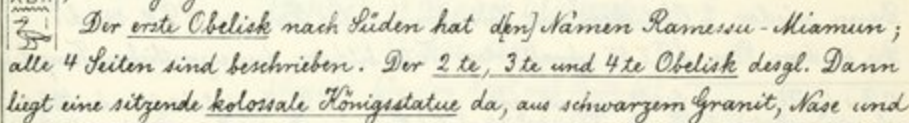 Der erste Obelisk nach Süden hat d[en] Namen Ramessu-Miamun;
alle 4 Seiten sind beschrieben. Der 2te, 3te und 4te Obelisk desgl. Dann
liegt eine sitzende kolossale Königsstatue da, aus schwarzem Granit, Nase und